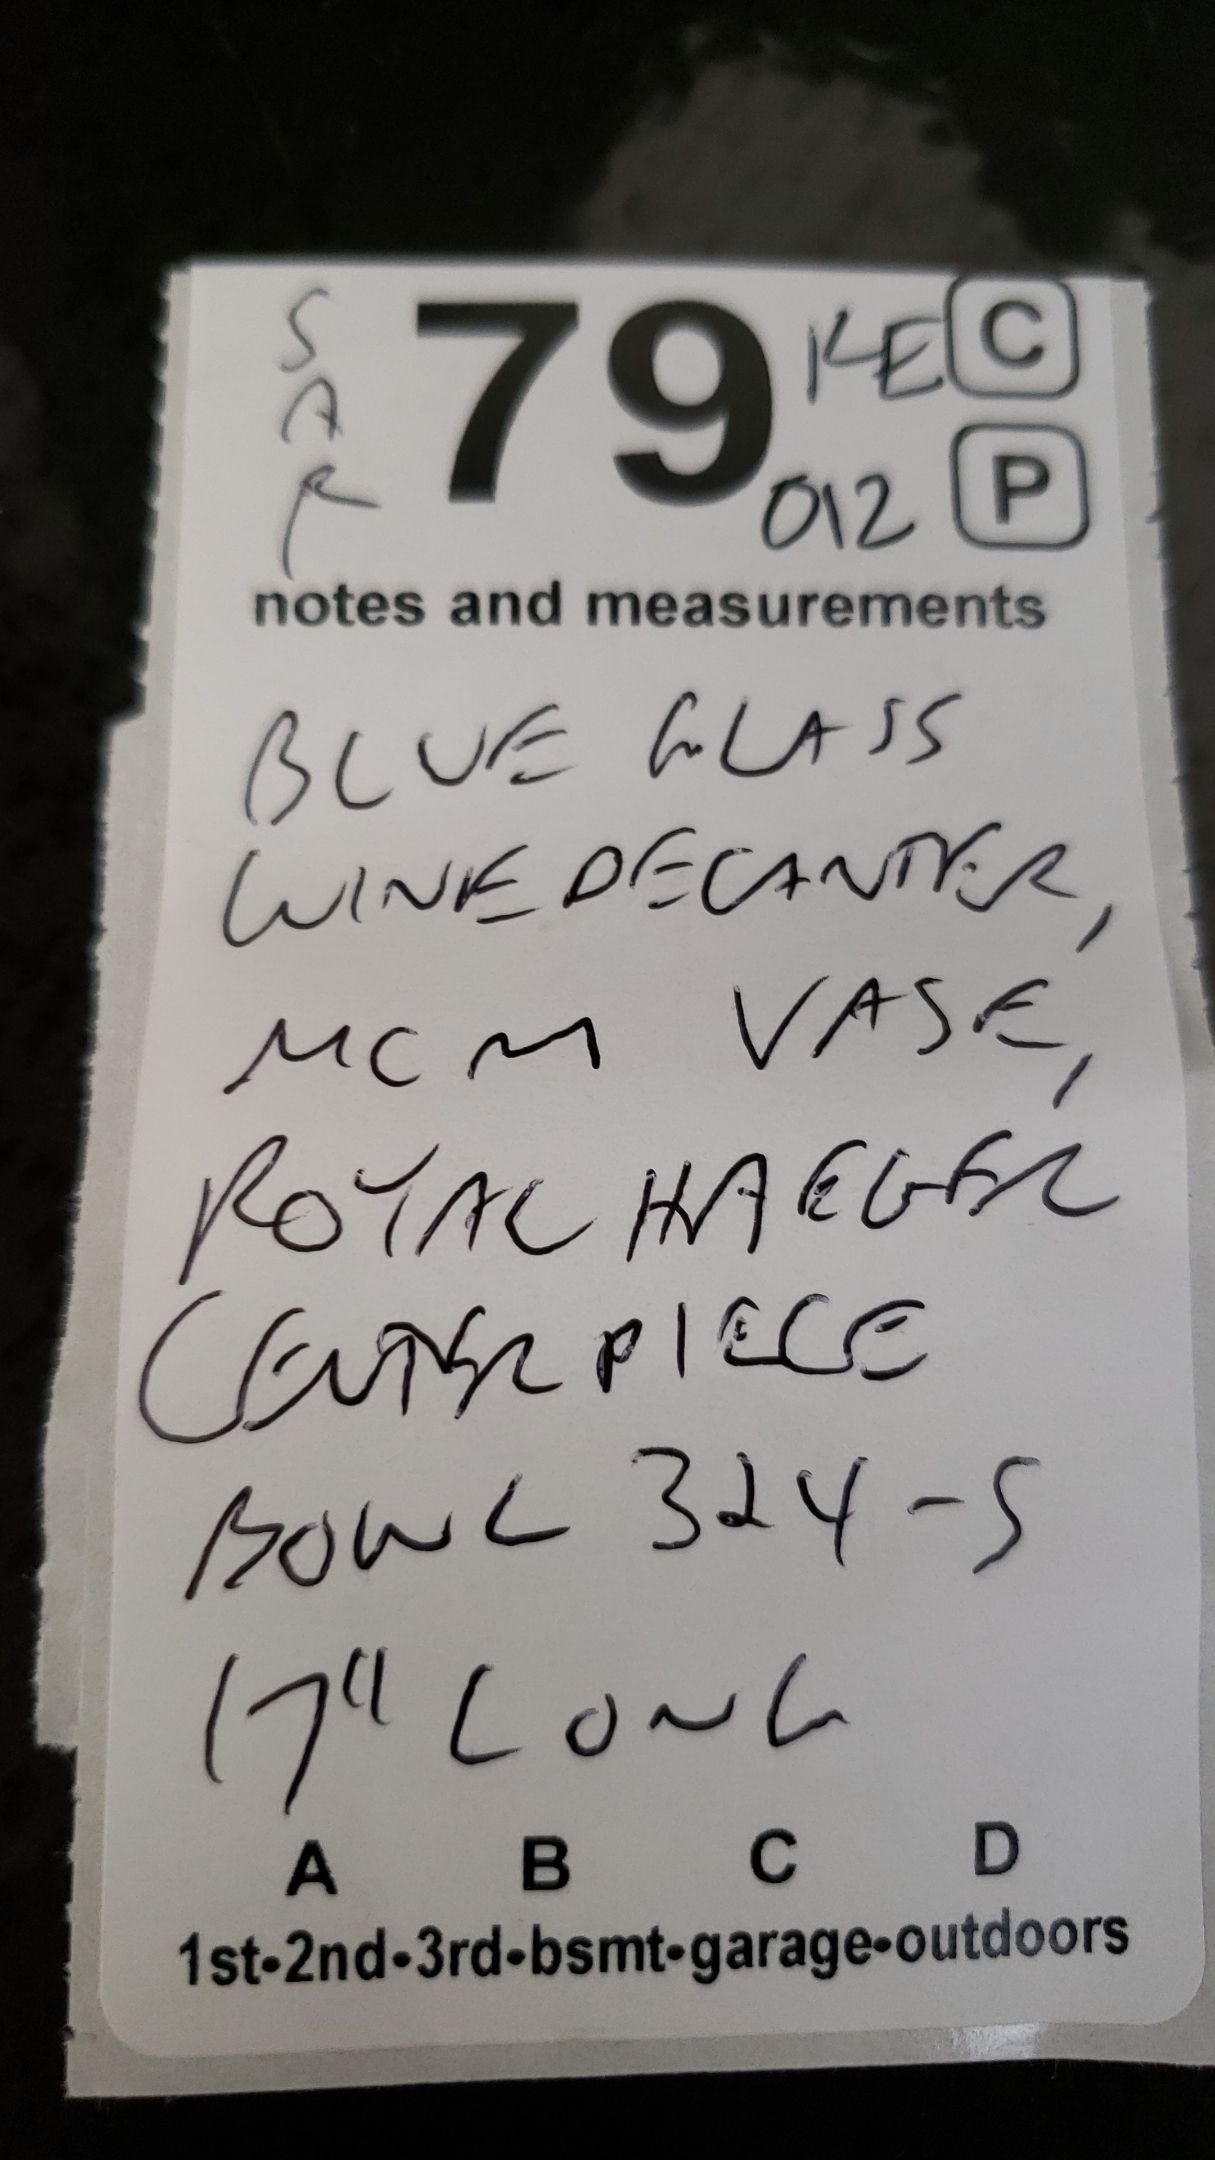 SAR 79 KE C
012 P
notes and measurements
BLUE GLASS
WINE DECANTER,
MCM VASE,
ROYAL HAEGER
CENTERPIECE
BOWL 324-S
17" LONG
A B C D
1st•2nd•3rd•bsmt•garage•outdoors